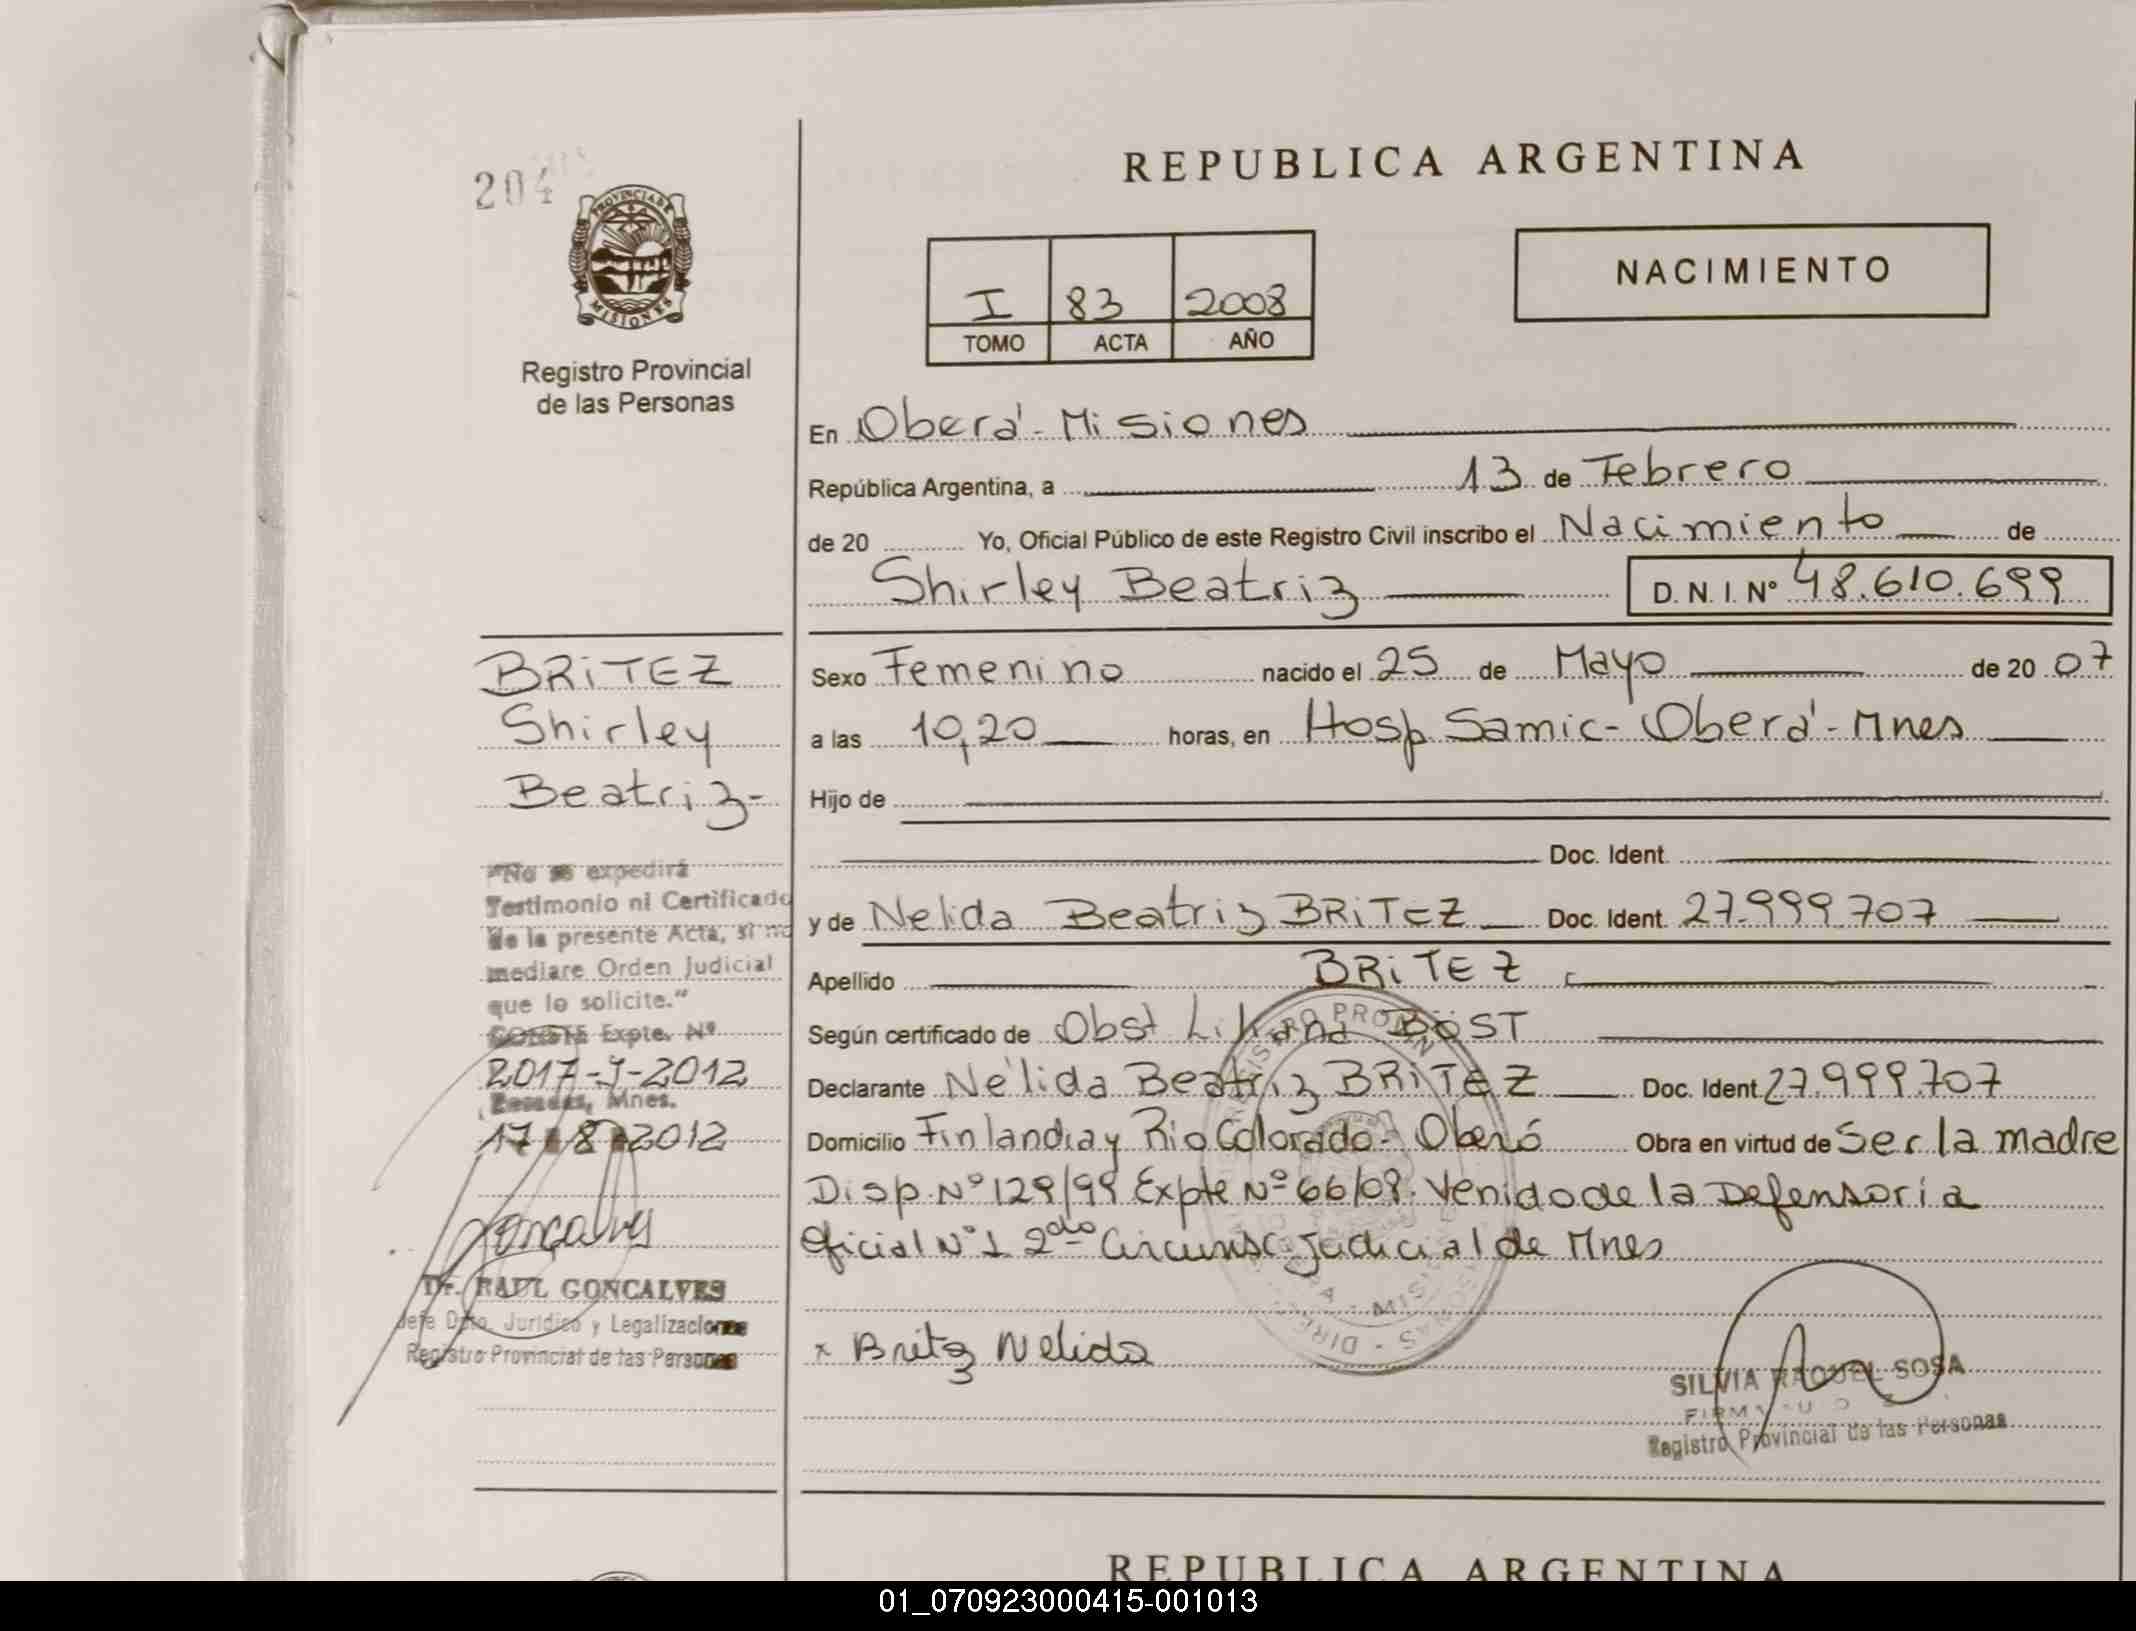 204
PROVINCIA DE
MISIONES
Registro Provincial
de las Personas
REPUBLICA ARGENTINA
I 83 2008
TOMO ACTA AÑO
NACIMIENTO
En Oberá - Misiones
República Argentina, a 13 de Febrero
de 20 Yo, Oficial Público de este Registro Civil inscribo el Nacimiento de
Shirley Beatriz D.N.I. Nº 48.610.699
Sexo Femenino nacido el 25 de Mayo de 2007
a las 10,20 horas, en Hosp Samic - Oberá - Mnes
Hijo de
Doc. Ident.
y de Nelida Beatriz BRITEZ Doc. Ident. 27.999.707
Apellido BRITEZ
Según certificado de Obst Liliana BÖST
Declarante Nélida Beatriz BRITEZ Doc. Ident. 27.999.707
Domicilio Finlandia y Rio Colorado - Oberá Obra en virtud de Ser la madre
Disp. Nº 129/99 Expte Nº 66/08. Venido de la Defensoria
Oficial Nº 1 2da Circunsc. Judicial de Mnes
x Britz Nelida
SILVIA RAQUEL SOSA
Registro Provincial de las Personas
BRITEZ
Shirley
Beatriz -
"No se expedirá
Testimonio ni Certificado
de la presente Acta, si no
mediare Orden Judicial
que lo solicite."
Expte. Nº
2017-J-2012
Posadas, Mnes.
17 8 2012
Goncalves
Dr. RAUL GONCALVES
Jefe Dpto. Jurídico y Legalizaciones
Registro Provincial de las Personas
REPUBLICA ARGENTINA
01_070923000415-001013